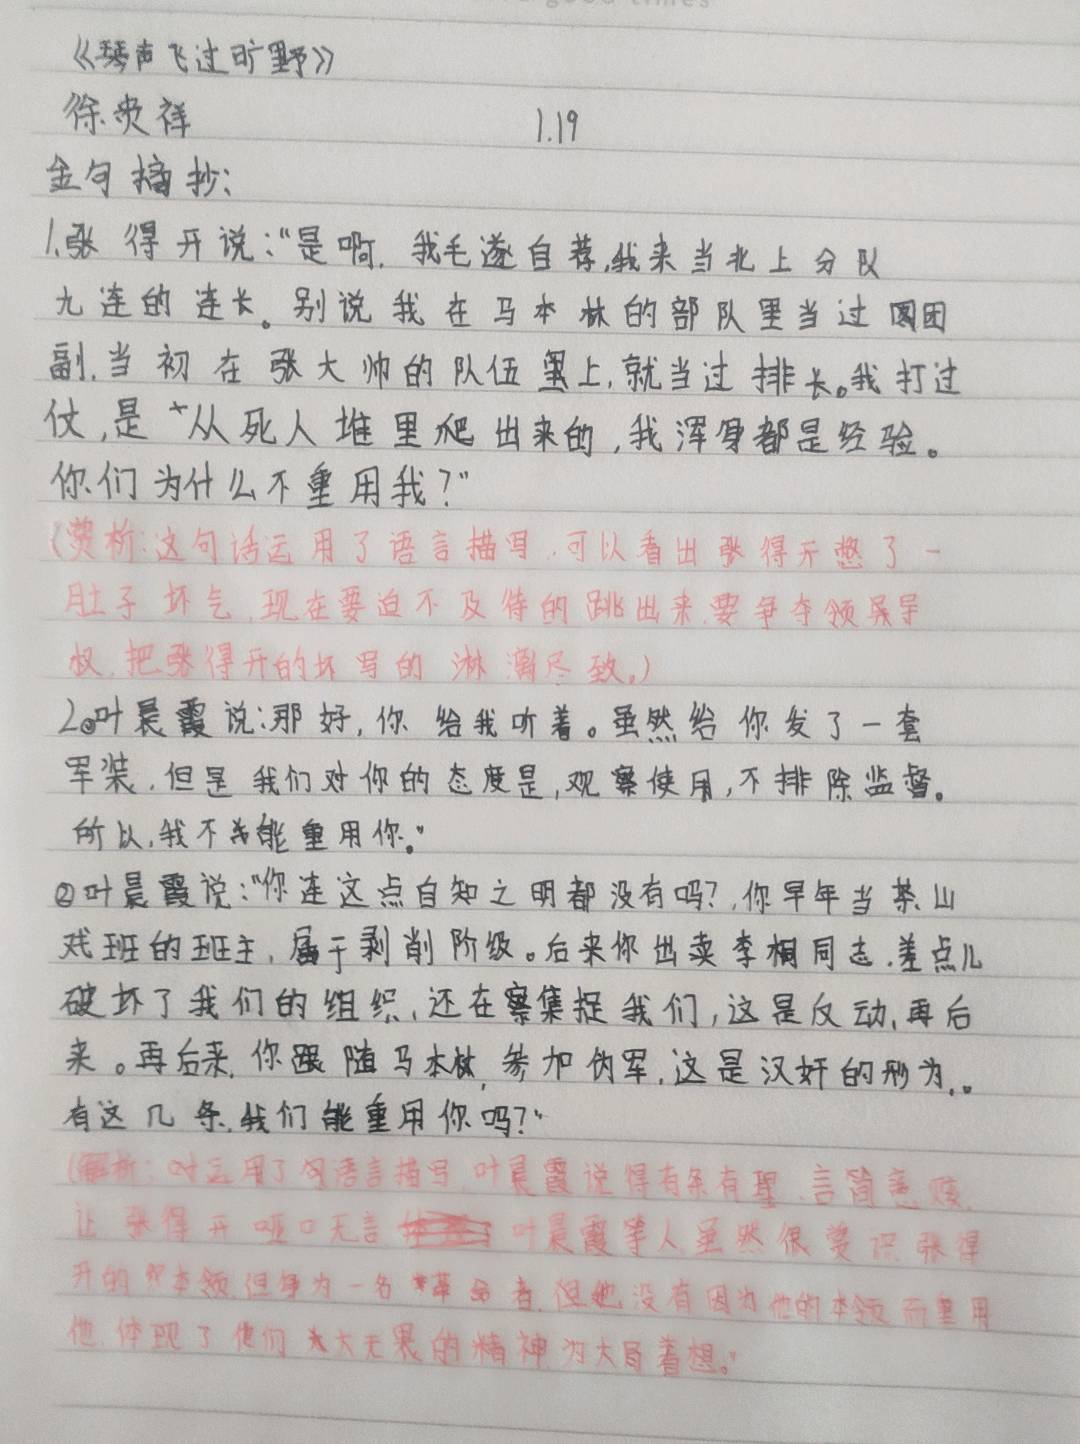 good times
《琴声飞过旷野》
徐贵祥 1.19
金句摘抄:
1.张得开说:“是啊,我毛遂自荐,我来当北上分队
九连的连长。别说我在马本林的部队里当过团
副,当初在张大帅的队伍里上,就当过排长。我打过
仗,是从死人堆里爬出来的,我浑身都是经验。
你们为什么不重用我?”
(赏析:这句话运用了语言描写,可以看出张得开憋了一
肚子坏气,现在要迫不及待的跳出来,要争夺领导
权,把张得开的坏写的淋漓尽致。)
2.①叶晨霞说:那好,你给我听着。虽然给你发了一套
军装,但是我们对你的态度是,观察使用,不排除监督。
所以,我不能重用你。”
②叶晨霞说:“你连这点自知之明都没有吗?,你早年当茶山
戏班的班主,属于剥削阶级。后来你出卖李桐同志,差点儿
破坏了我们的组织,还在密集捉我们,这是反动,再后
来。再后来,你跟随马本林,参加伪军,这是汉奸的形为,。
有这几条,我们能重用你吗?”
(解析:运用了语言描写,叶晨霞说得有条有理,言简意赅,
让张得开哑口无言 叶晨霞等人虽然很赏识张得
开的本领,但身为一名革命者,但她没有因为他的本领而重用
他,体现了他们大无畏的精神为大局着想。”